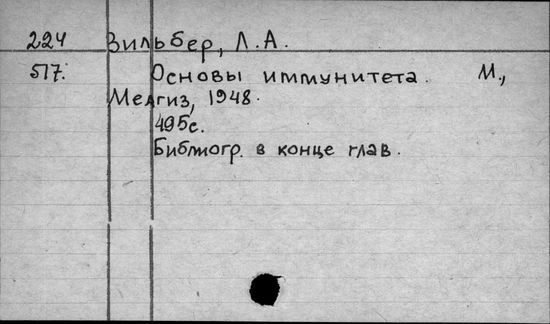 224 Зильбер, Л. А.
517. Основы иммунитета. М.,
Медгиз, 1948.
495с.
Библиогр. в конце глав.